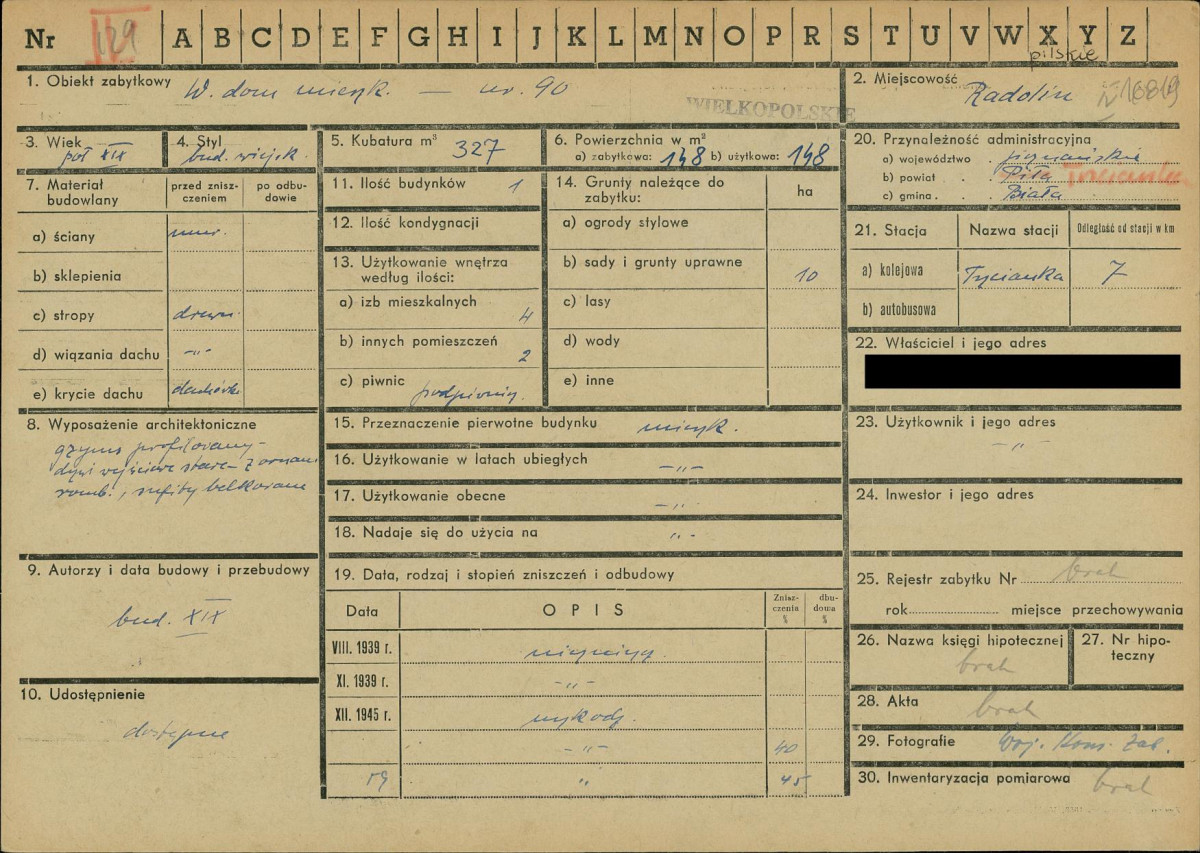 Nr 129 A B C D E F G H I J K L M N O P R S T U V W X Y Z
pilskie
1. Obiekt zabytkowy W. dom mieszk. — nr. 90
WIELKOPOLSKIE
2. Miejscowość Radolin
3. Wiek poł XIX
4. Styl bud. wiejsk.
5. Kubatura m³ 327
6. Powierzchnia w m²
a) zabytkowa: 148 b) użytkowa: 148
7. Materiał budowlany
przed zniszczeniem
po odbudowie
a) ściany mur.
b) sklepienia
c) stropy drewn.
d) wiązania dachu -„-
e) krycie dachu dachówk
8. Wyposażenie architektoniczne
gzyms profilowany –
drzwi wejściowe stare – z ornam.
romb., sufity belkowane
9. Autorzy i data budowy i przebudowy
bud. XIX
10. Udostępnienie
dostępne
11. Ilość budynków 1
12. Ilość kondygnacji
13. Użytkowanie wnętrza według ilości:
a) izb mieszkalnych 4
b) innych pomieszczeń 2
c) piwnic podpiwnicz.
14. Grunty należące do zabytku:
ha
a) ogrody stylowe
b) sady i grunty uprawne 10
c) lasy
d) wody
e) inne
15. Przeznaczenie pierwotne budynku mieszk.
16. Użytkowanie w latach ubiegłych -„-
17. Użytkowanie obecne -„-
18. Nadaje się do użycia na „-
19. Data, rodzaj i stopień zniszczeń i odbudowy
Data
OPIS
Zniszczenia %
dbudowa %
VIII. 1939 r.
XI. 1939 r. -„-
XII. 1945 r.
-„- 40
59 „ 45
20. Przynależność administracyjna
a) województwo . poznańskie
b) powiat . Piła Trzcianka
c) gmina . . Biała
21. Stacja
Nazwa stacji
Odległość od stacji w km
a) kolejowa Trzcianka 7
b) autobusowa
22. Właściciel i jego adres
23. Użytkownik i jego adres
-„-
24. Inwestor i jego adres
25. Rejestr zabytku Nr brak
rok miejsce przechowywania
26. Nazwa księgi hipotecznej
brak
27. Nr hipoteczny
28. Akta brak
29. Fotografie Woj. Kons. Zab.
30. Inwentaryzacja pomiarowa brak